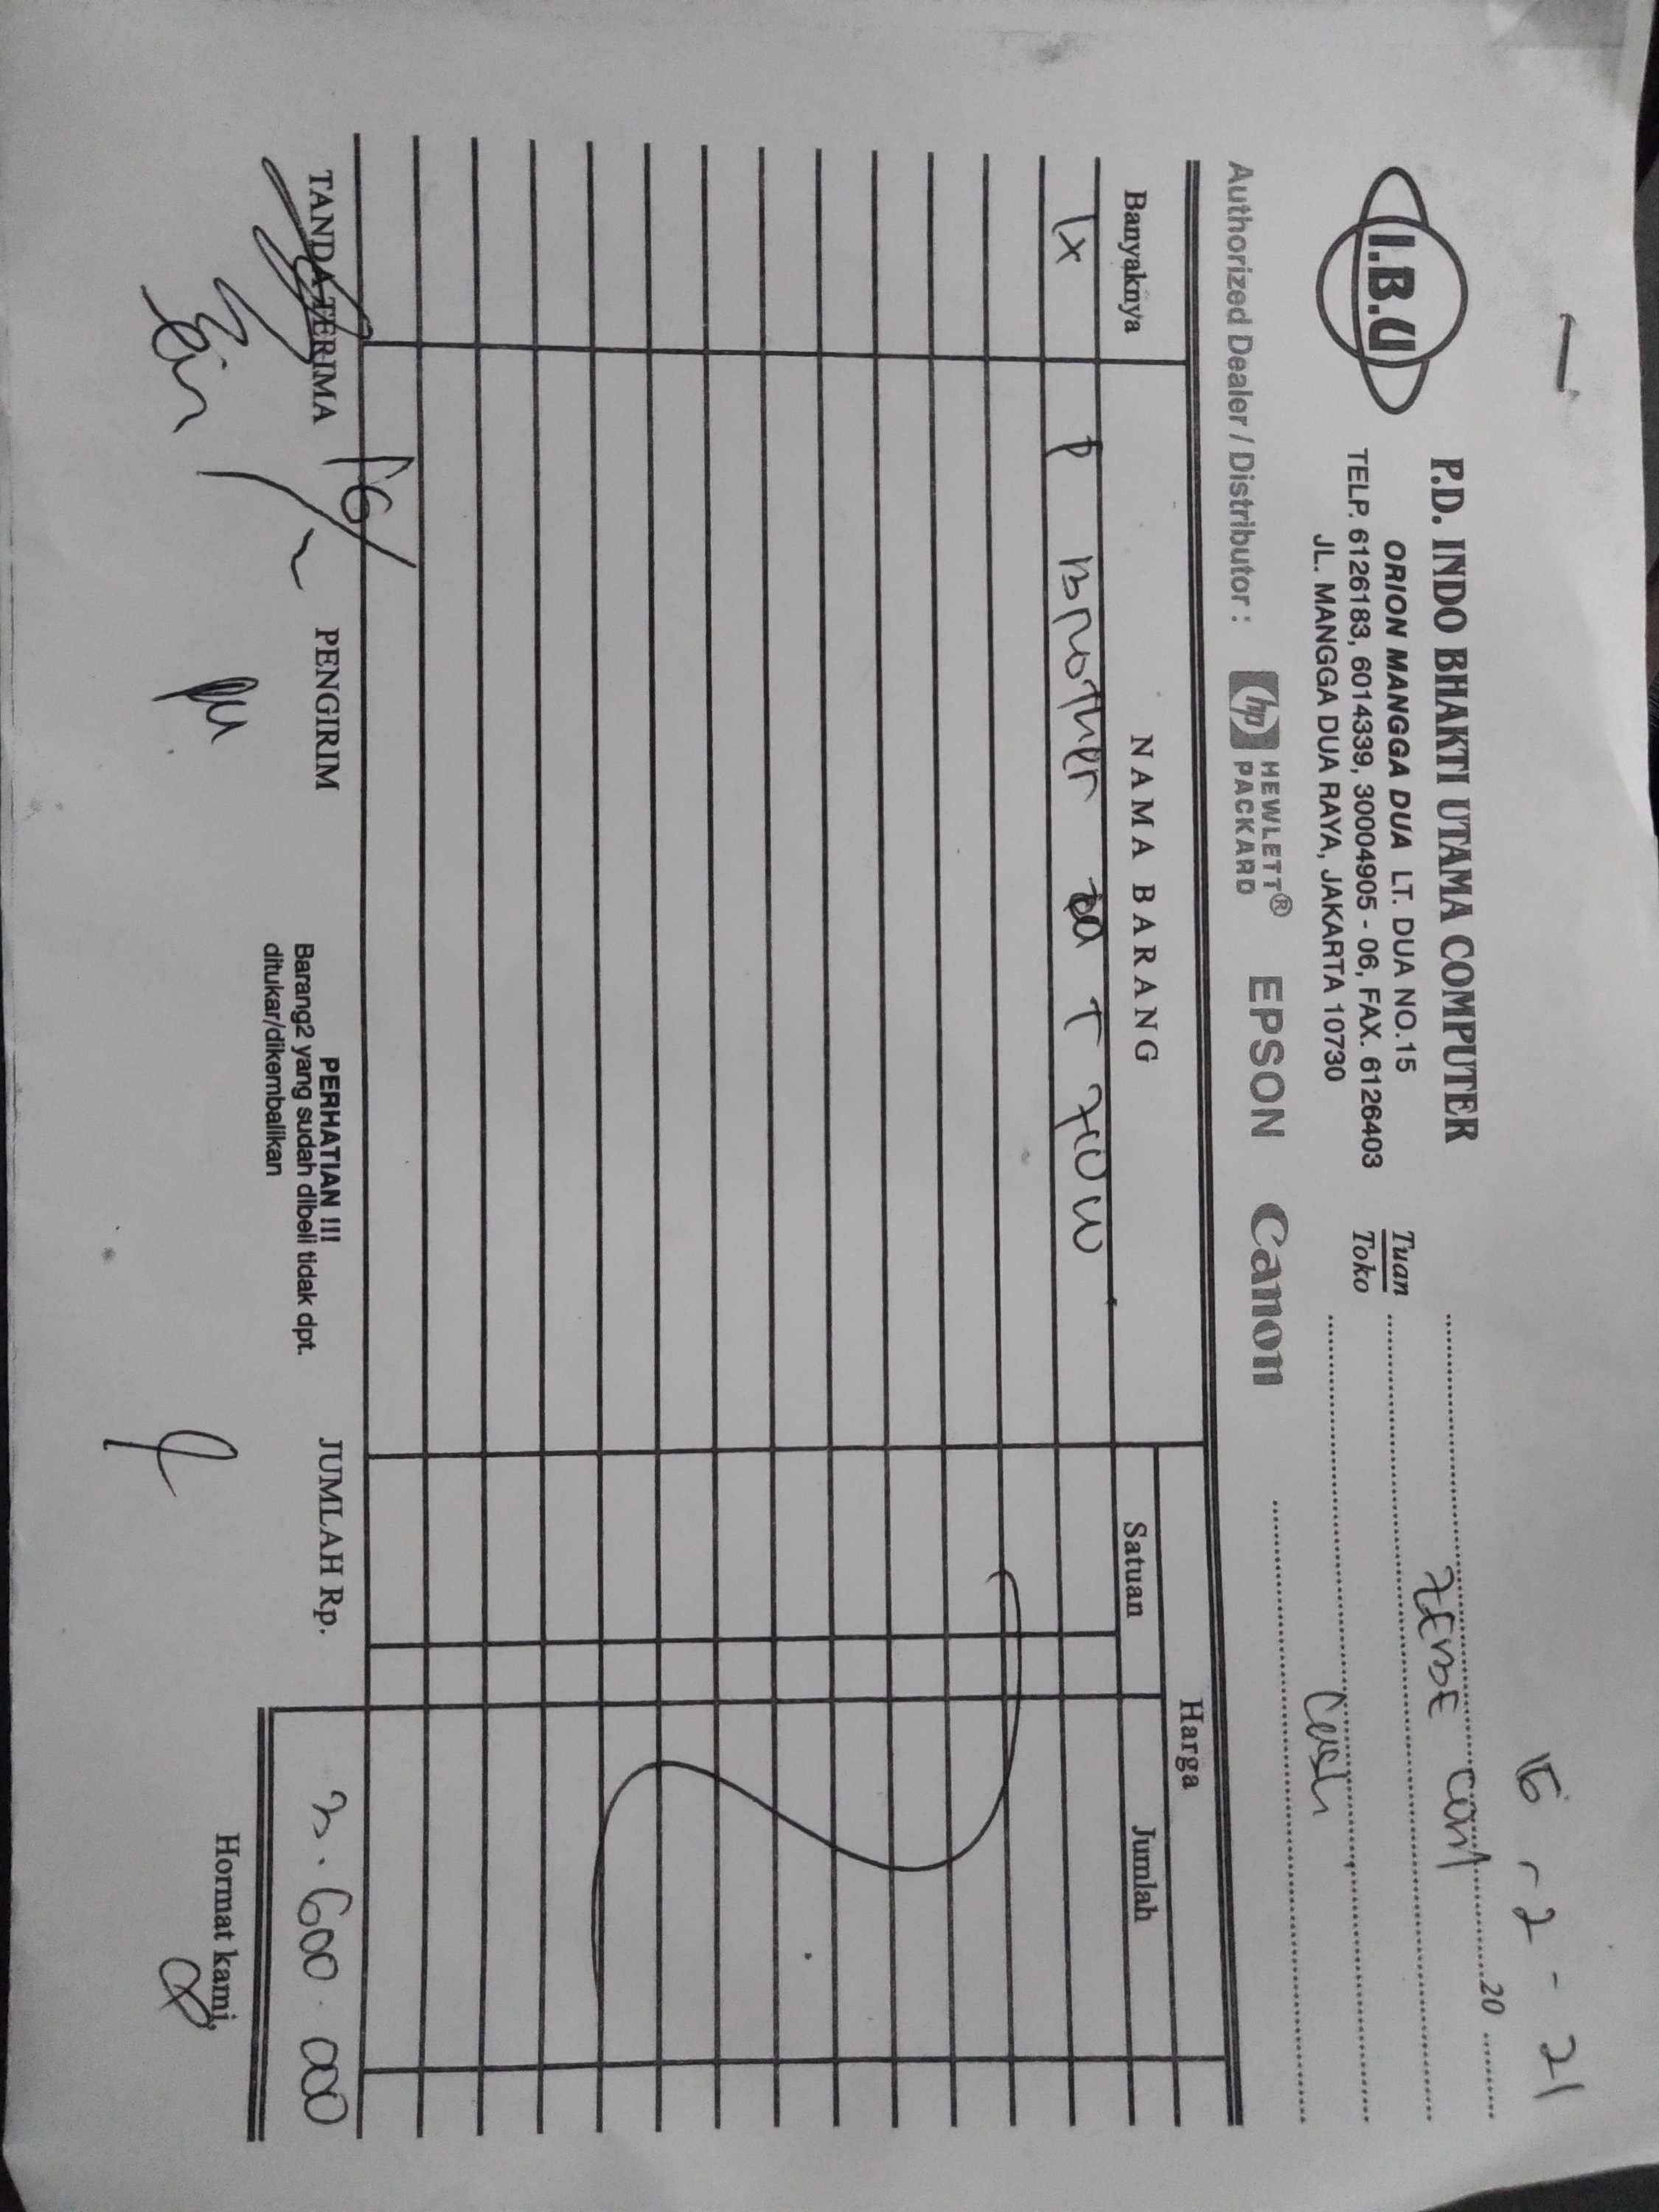 15 - 2 - 21
I.B.U
P.D. INDO BHAKTI UTAMA COMPUTER
20
ORION MANGGA DUA LT. DUA NO.15
TELP. 6126183, 6014339, 3004905 - 06, FAX. 6126403
JL. MANGGA DUA RAYA, JAKARTA 10730
Tuan
Toko
Cash
Authorized Dealer / Distributor : hp HEWLETT® PACKARD EPSON Canon
Banyaknya NAMA BARANG Harga
Satuan Jumlah
1x P Brother T 710W
TANDA TERIMA PENGIRIM
PERHATIAN !!!
Barang2 yang sudah dibeli tidak dpt.
ditukar/dikembalikan
JUMLAH Rp. 3.600.000
Hormat kami,